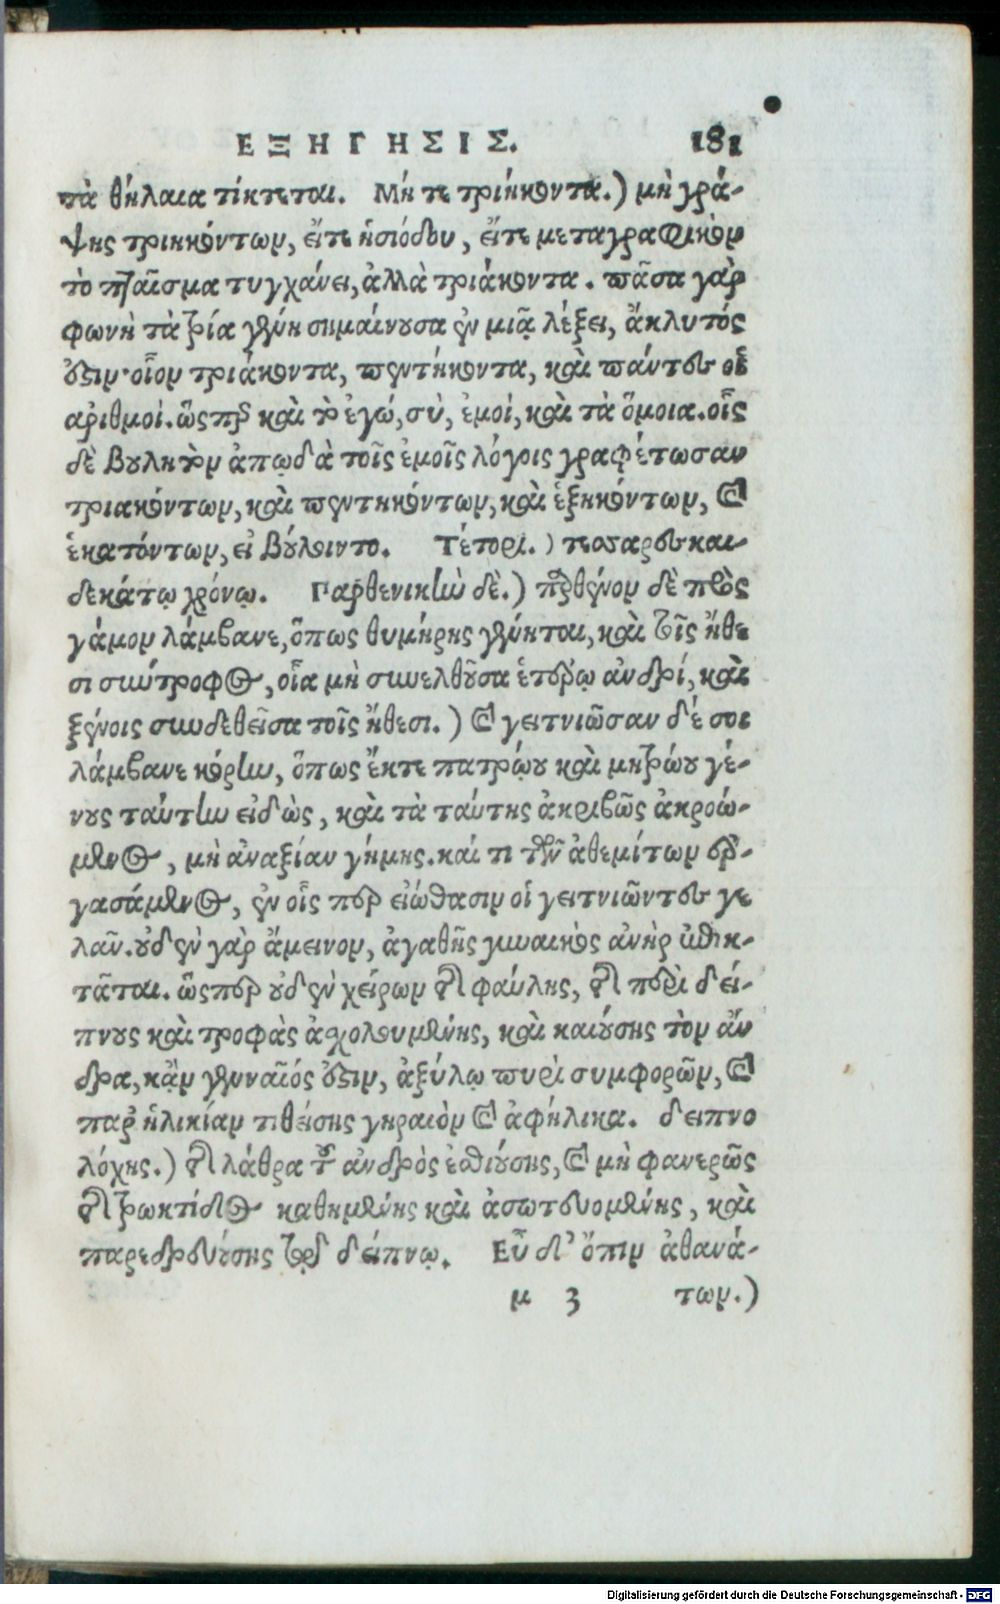 ΕΞΗΓΗΣΙΣ. 181
τὰ θήλαια τίκτεται. Μήτε τριήκοντα.) μὴ γρά-
ψης τριηκόντων, εἴτε ἡσιόδου, εἴτε μεταγραφικὸν
τὸ πταῖσμα τυγχάνει, ἀλλὰ τριάκοντα. πᾶσα γὰρ
φωνὴ τὰ τρία γένη σημαίνουσα ἐν μιᾷ λέξει, ἄκλυτός
ἐστιν· οἷον τριάκοντα, πεντήκοντα, καὶ πάντες οἱ
ἀριθμοί. ὥσπερ καὶ τὸ ἐγώ, σὺ, ἐμοί, καὶ τὰ ὅμοια. οἷς
δὲ βουλητὸν ἀπῳδὰ τοῖς ἐμοῖς λόγοις γραφέτωσαν
τριακόντων, καὶ πεντηκόντων, καὶ ἑξηκόντων, καὶ
ἑκατόντων, εἰ βούλοιντο. Τέτορι.) τεσσαρεσκαι-
δεκάτῳ χρόνῳ. Παρθενικὴν δὲ.) παρθένον δὲ πρὸς
γάμον λάμβανε, ὅπως θυμήρης γένηται, καὶ τοῖς ἤθε
σι σύντροφος, οἷα μὴ συνελθοῦσα ἑτέρῳ ἀνδρί, καὶ
ξένοις συνδεθεῖσα τοῖς ἤθεσι.) καὶ γειτνιῶσαν δέ σοι
λάμβανε κόρην, ὅπως ἔκτε πατρῴου καὶ μητρῴου γέ-
νους ταύτην εἰδὼς, καὶ τὰ ταύτης ἀκριβῶς ἀκροώ-
μενος, μὴ ἀναξίαν γήμῃς. καί τι τῶν ἀθεμίτων ἐρ-
γασάμενος, ἐν οἷς περ εἰώθασιν οἱ γειτνιῶντες γε
λᾶν. οὐδὲν γὰρ ἄμεινον, ἀγαθῆς γυναικὸς ἀνὴρ ἐπικ-
τᾶται. ὥσπερ οὐδὲν χείρων τῆς φαύλης, τῆς περὶ δεί-
πνους καὶ τροφὰς ἀσχολουμένης, καὶ καιούσης τὸν ἄν
δρα, κἂν γενναῖός ἐστιν, ἀξύλῳ πυρὶ συμφορῶν, καὶ
παρ' ἡλικίαν τιθείσης γηραιὸν καὶ ἀφήλικα. δειπνο
λόχης.) τῆς λάθρα τοῦ ἀνδρὸς ἐσθιούσης, καὶ μὴ φανερῶς
τῆς τρωκτίδος καθημένης καὶ ἀσωτευομένης, καὶ
παρεδρευούσης τῷ δείπνῳ. Εὖ δ' ὄπιν ἀθανά-
μ 3 των.)
Digitalisierung gefördert durch die Deutsche Forschungsgemeinschaft - DFG